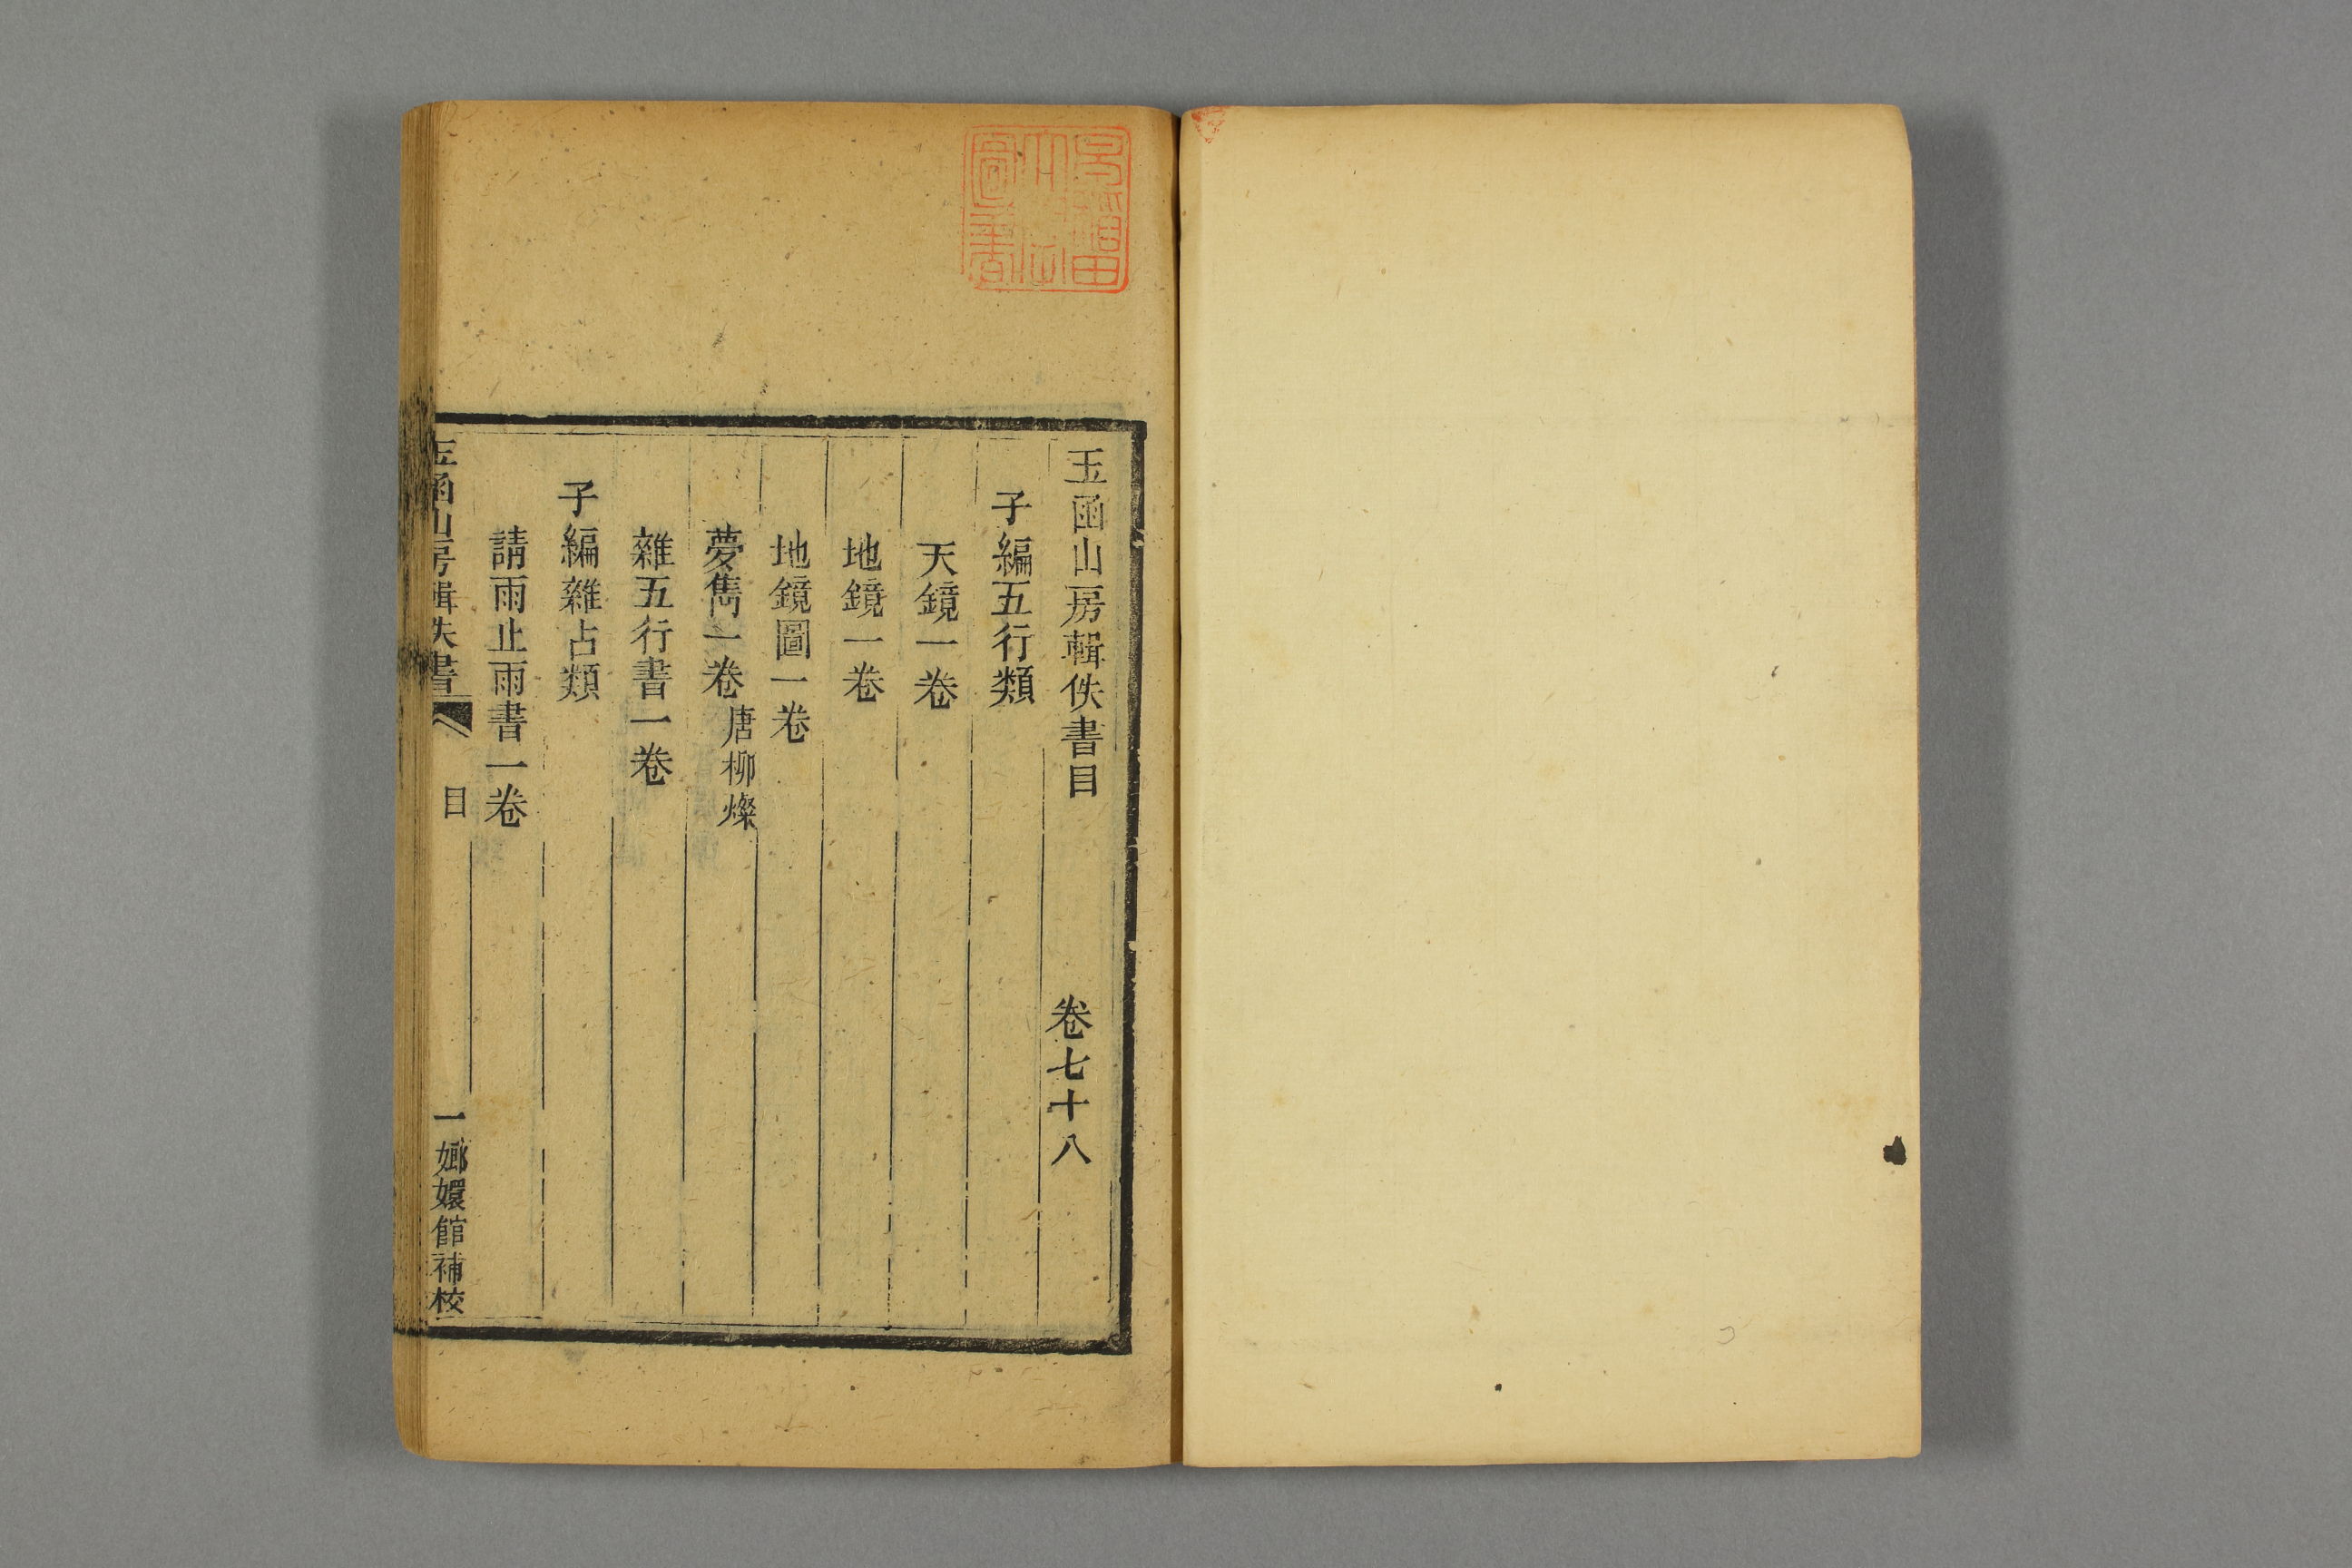 玉函山房輯佚書目 卷七十八
子編五行類
天鏡一卷
地鏡一卷
地鏡圖一卷
夢雋一卷 唐柳燦
雜五行書一卷
子編雜占類
請雨止雨書一卷
玉函山房輯佚書 目 一 嫏嬛館補校